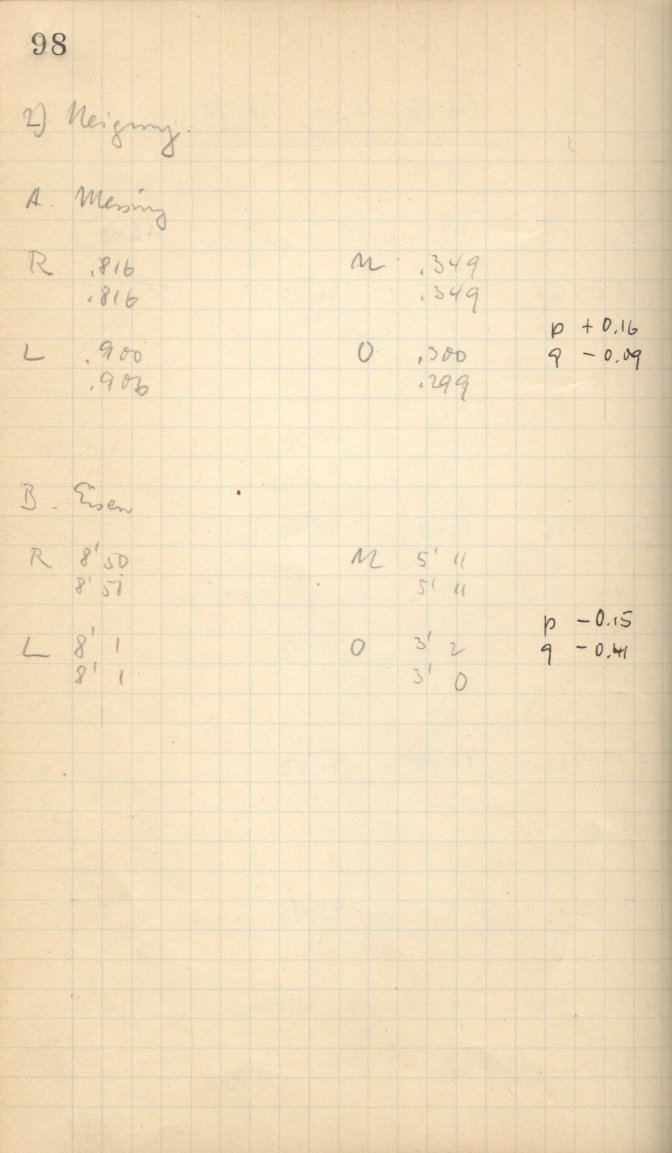 98
2) Neigung.
A. Messing
R .816 M .349
.816 .349
p + 0.16
L .900 O .300 q - 0.09
.906 .299
B. Eisen
R 8' 50 M 5' 11
8' 51 5' 11
p - 0.15
L 8' 1 O 3' 2 q - 0.41
8' 1 3' 0